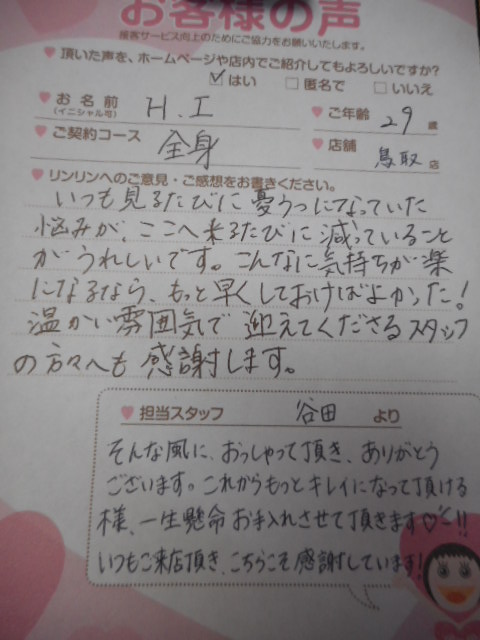 お客様の声
接客サービス向上のためにご協力をお願いいたします。
頂いた声を、ホームページや店内でご紹介してもよろしいですか?
はい 匿名で いいえ
お名前 (イニシャル可) H.I ご年齢 29 歳
ご契約コース 全身 店舗 鳥取 店
リンリンへのご意見・ご感想をお書きください。
いつも見るたびに憂うつになっていた
悩みが、ここへ来るたびに減っていること
がうれしいです。こんなに気持ちが楽
になるなら、もっと早くしておけばよかった!
温かい雰囲気で迎えてくださるスタッフ
の方々へも感謝します。
担当スタッフ 谷田 より
そんな風に、おっしゃって頂き、ありがとう
ございます。これからもっとキレイになって頂ける
様、一生懸命お手入れさせて頂きます♡!!
いつもご来店頂き、こちらこそ感謝しています!